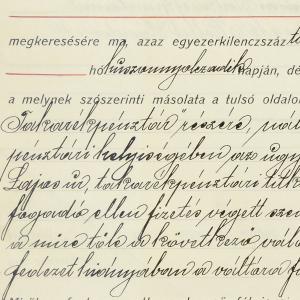 megkeresésére ma, azaz egyezerkilencszáz
hó huszonnyolczadik napján, dé
a melynek szószerinti másolata a tulsó oldalo
Takarékpénztár részére, vál
pénztári helyiségében az ügy
Lajos úr, takarékpénztári titk
fogadó ellen fizetés végett
a mire tőle a következő vála
fedezet hiányában a váltóra f